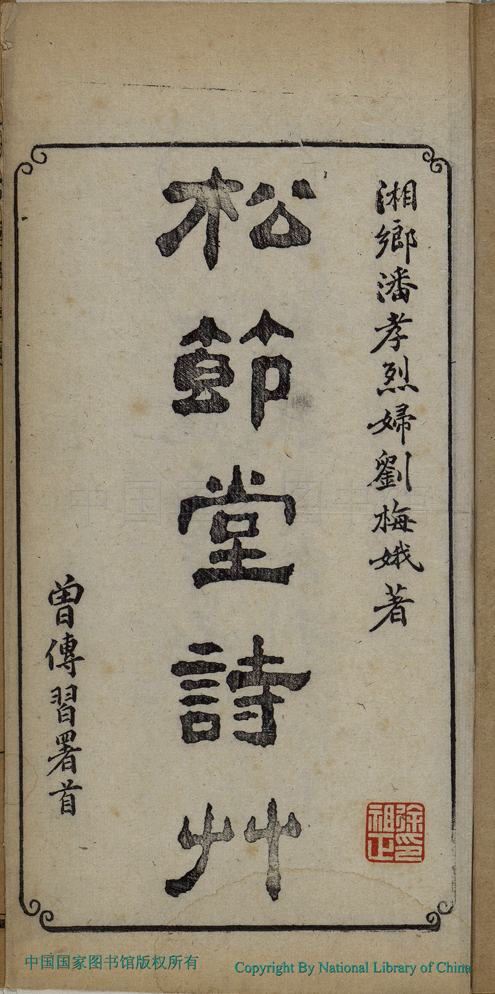 湘鄉潘孝烈婦劉梅娥著
松節堂詩艸
曾傳習署首
徐祖正印
中国国家图书馆版权所有
Copyright By National Library of China